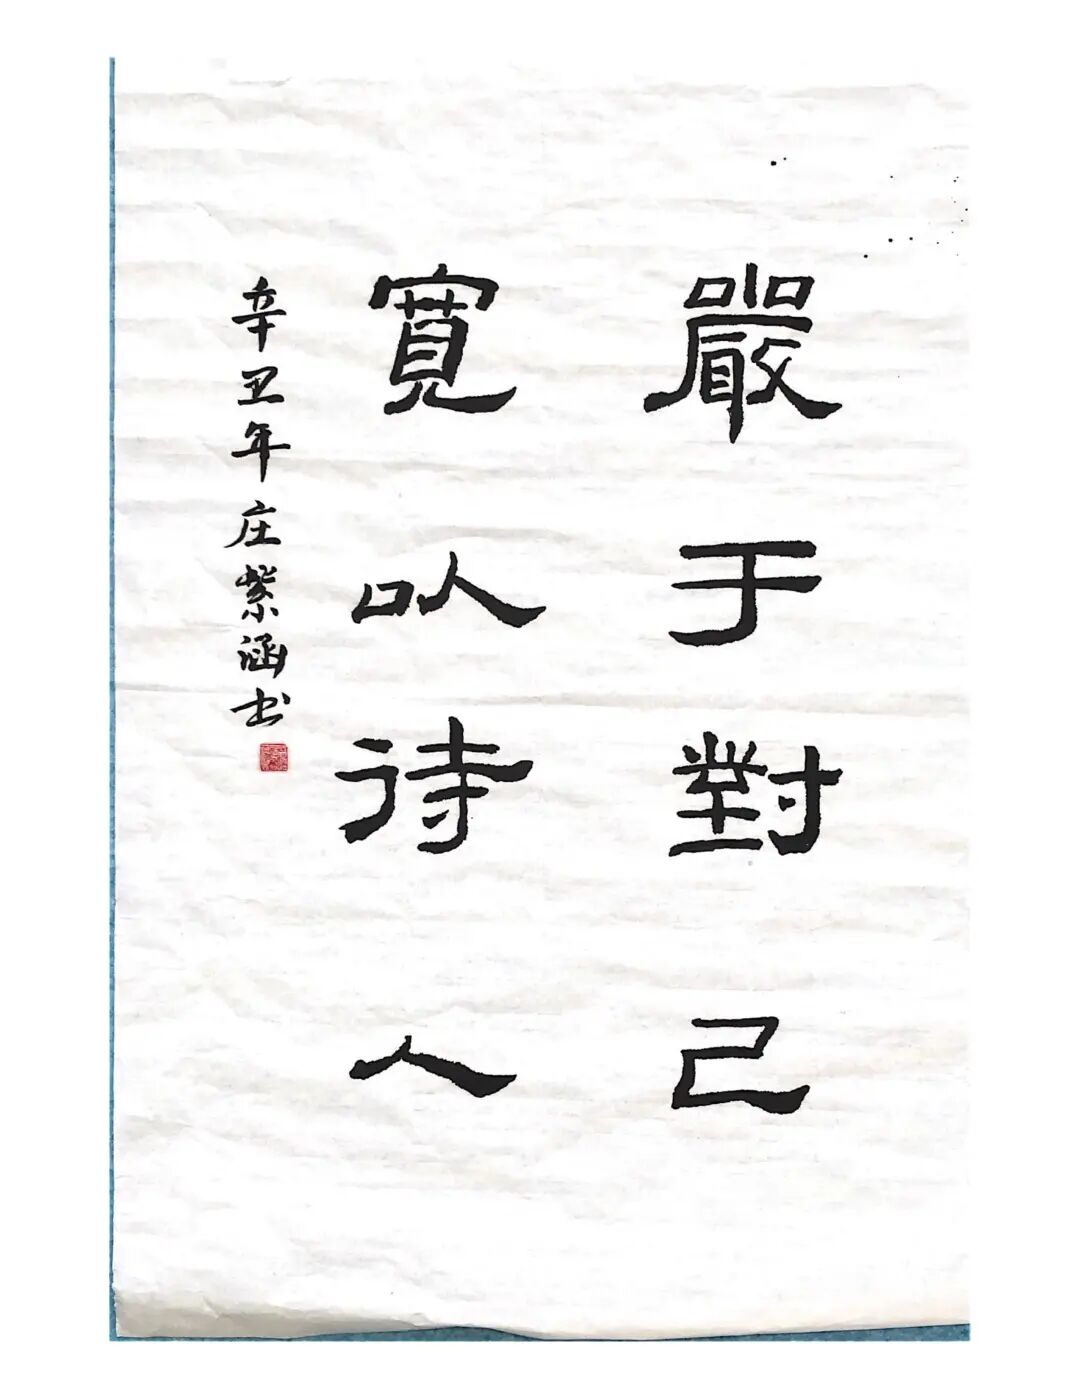 嚴于對己
寬以待人
辛丑年庄紫涵书